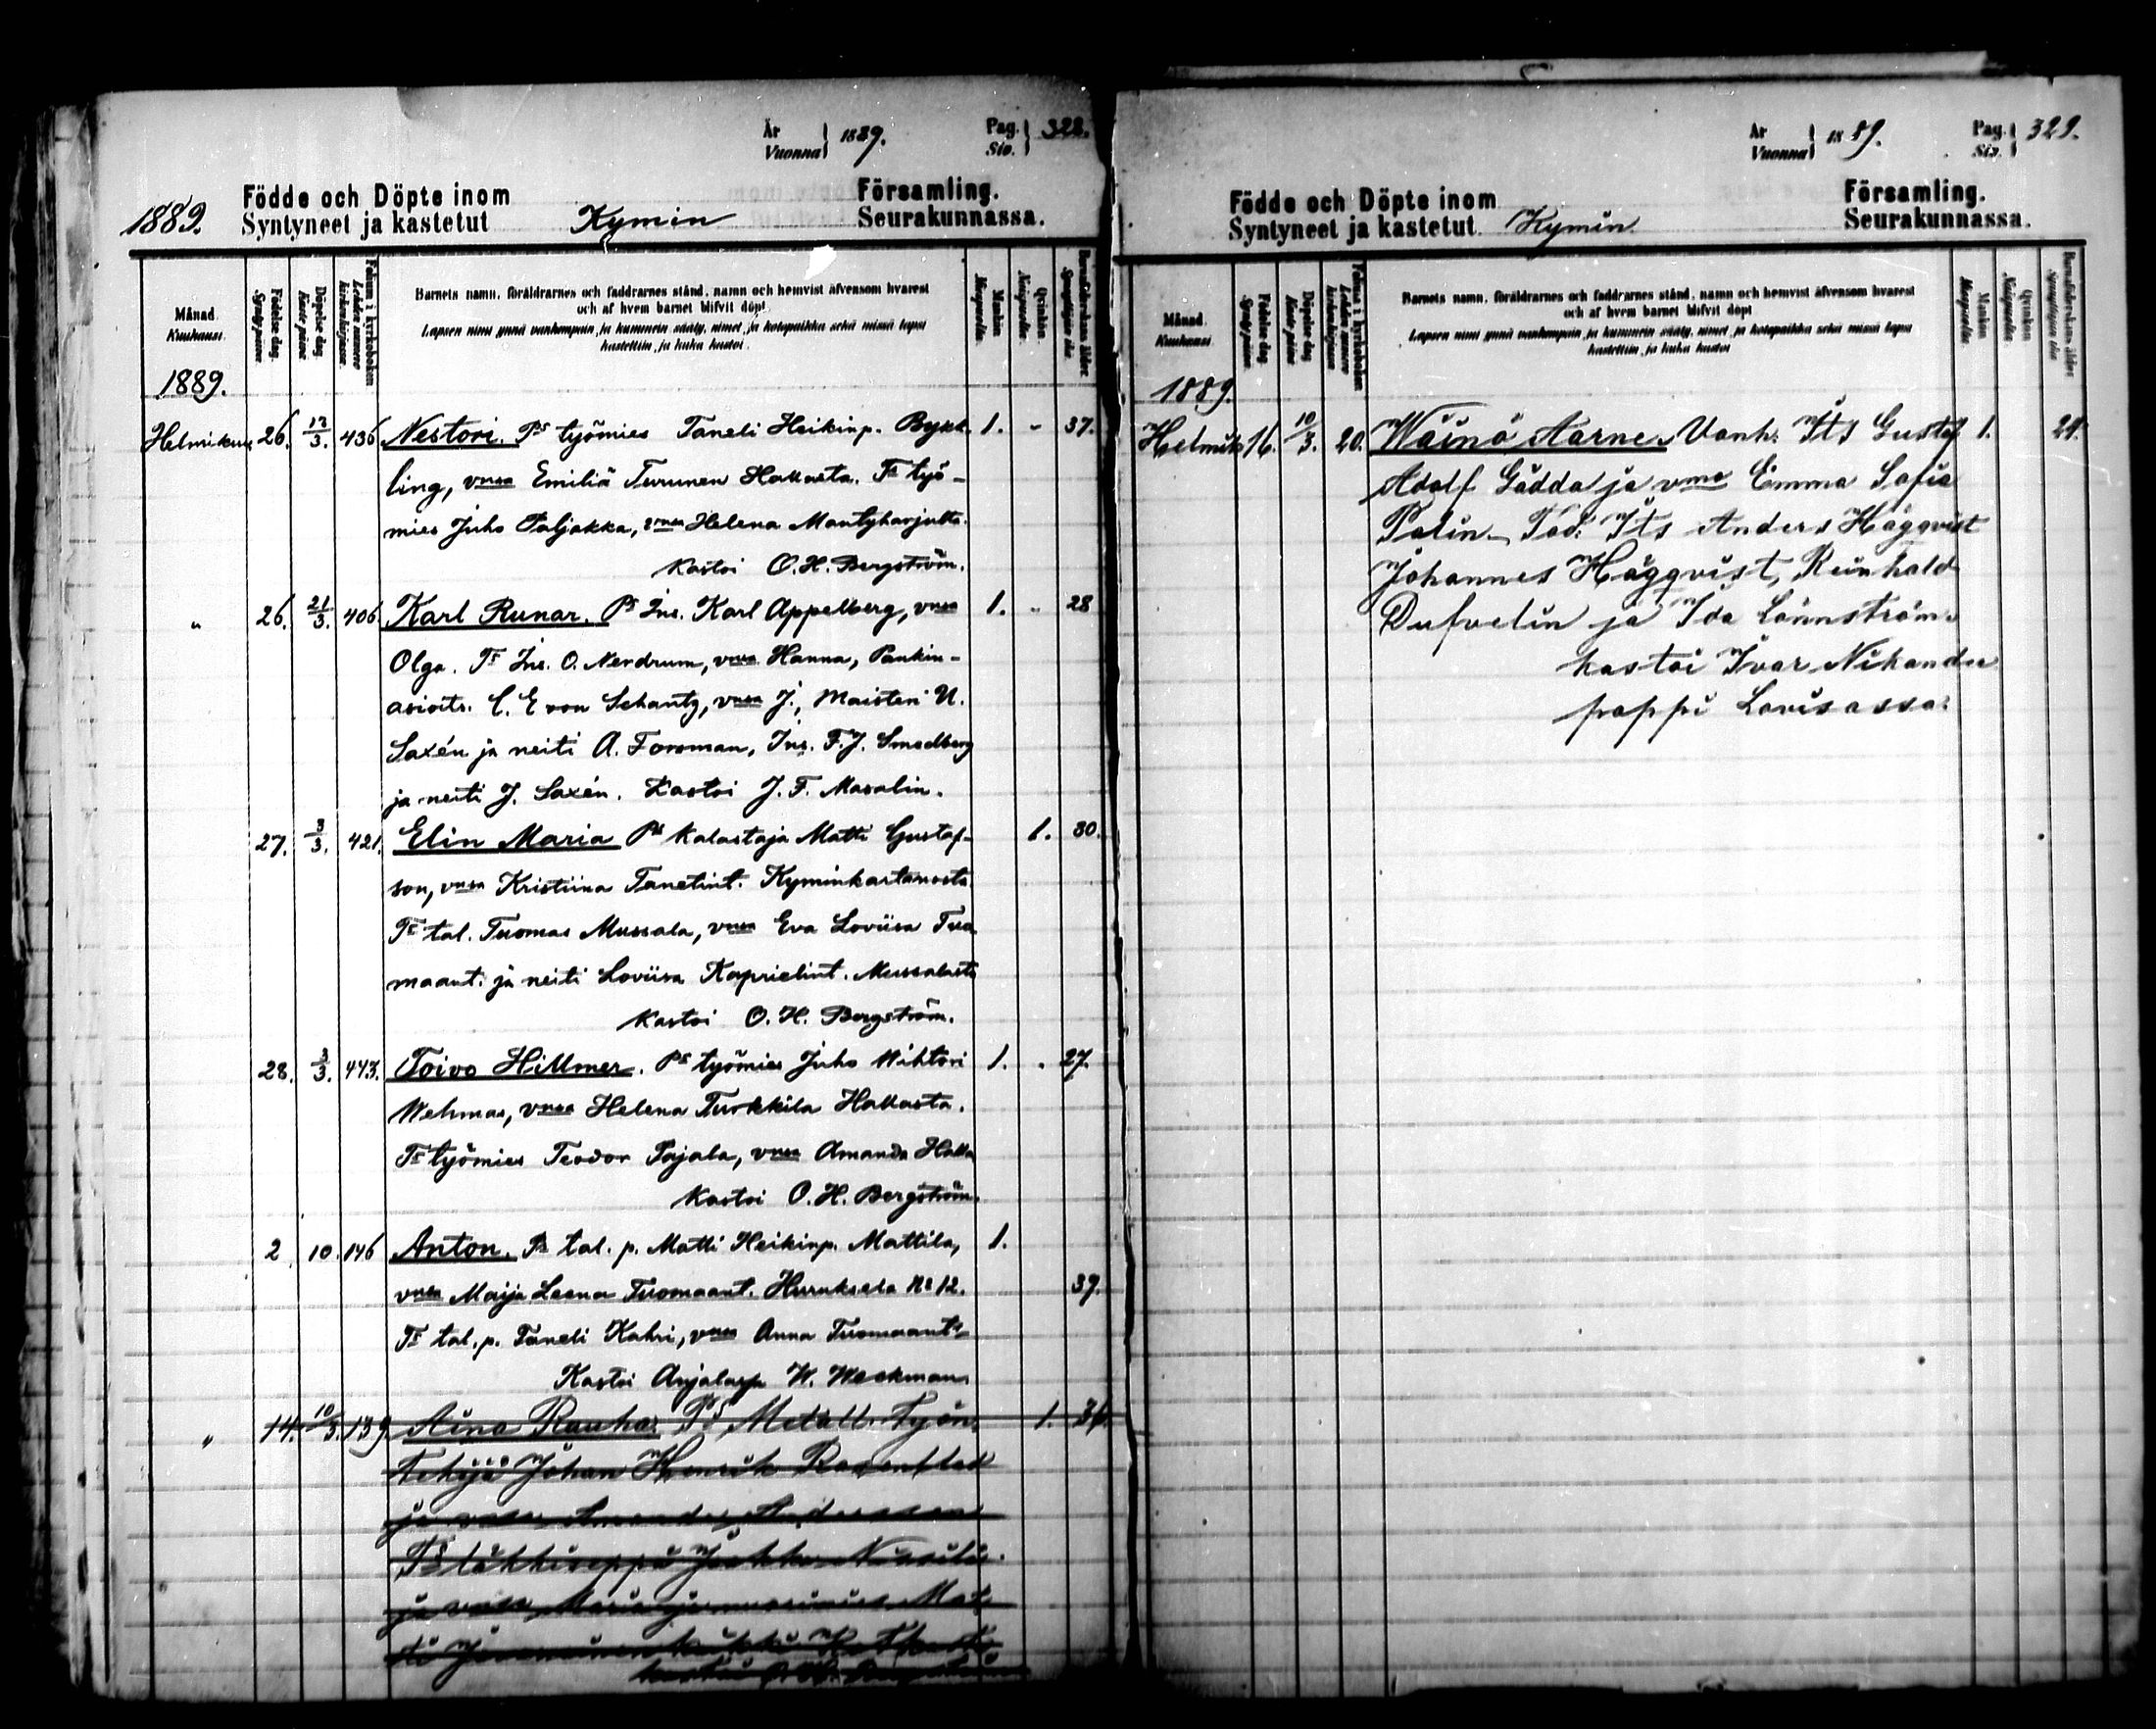 År
Vuonna } 1889.
Pag.
Siv. } 328.
1889.
Födde och Döpte inom Församling.
Syntyneet ja kastetut Kymin Seurakunnassa.
Månad.
Kuukausi.
Födelse dag.
Syntypäivä.
Döpelse dag.
Kaste päivä.
Folium i kyrkoboken
Lehden numero
kirkonkirjassa.
Barnets namn, föräldrarnes och faddrarnes stånd, namn och hemvist äfvensom hvarest
och af hvem barnet blifvit döpt.
Lapsen nimi ynnä vanhempain, ja kummein sääty, nimet, ja kotopaikka sekä missä lapsi
kastettiin, ja kuka kastoi.
Mankön
Miespuolia.
Qvinkön
Naispuolia.
Barnaföderskans ålder.
Synnyttäjän ikä.
1889.
Helmikuu 26. 17/3. 436 Nestori. Pt työmies Taneli Heikinp. Bykk 1. " 37.
ling, vmsa Emiliä Turunen Hallasta. Tt työ-
mies Juho Paljakka, vmsa Helena Mantyharjulta.
Kastoi O. H. Bergström.
" 26. 21/3. 406 Karl Runar. Pt Ins. Karl Appelberg, vmsa 1. " 28
Olga. Tt Ins. O. Nerdrum, vmsa Hanna, Pankin-
asioits. C. E von Schantz, vmsa J., Maisteri U.
Saxén ja neiti A. Forsman, Ins. F. J. Smedberg
ja neiti J. Saxén. Kastoi J. F. Masalin.
27. 3/3. 421. Elin Maria Pt Kalastaja Matti Gustaf- 1. 30.
son, vmsa Kristiina Tanelint. Kyminkartanosta.
Tt tal. Tuomas Mussala, vmsa Eva Loviisa Tuo
maant. ja neiti Loviisa Kaprielint. Mussalasta
Kastoi O. H. Bergström.
28. 3/3. 443. Toivo Hillmer. Pt työmies Juho Wihtori 1. " 27.
Wehmas, vmsa Helena Turkkila Hallasta.
Tt työmies Teodor Pajala, vmsa Amanda Halla
Kastoi O. H. Bergström.
2 10. 146 Anton. Pt tal. p. Matti Heikinp. Mattila, 1.
vmsa Maija Leena Tuomaant. Huruksela No 12. 39.
Tt tal. p. Taneli Kahri, vmsa Anna Tuomaant.
Kastoi Anjalasp W. Weckman
" 14. 10/3. 139 Aina Rauha. Pt Metall. Työn 1.
tekijä Johan Henrik
ja vmsa Amanda Andersson
Tt läkkiseppä
ja vmsa Maria ja muurimies Mat
År
Vuonna } 1889.
Pag.
Siv. } 329.
Födde och Döpte inom Församling.
Syntyneet ja kastetut Kymin Seurakunnassa.
Månad.
Kuukausi.
Födelse dag.
Syntypäivä.
Döpelse dag.
Kaste päivä
Folium i kyrkoboken
Lehden numero
kirkonkirjassa
Barnets namn, föräldrarnes och faddrarnes stånd, namn och hemvist äfvensom hvarest
och af hvem barnet blifvit döpt
Lapsen nimi ynnä vanhempain, ja kummein sääty, nimet, ja kotopaikka sekä missä lapsi
kastettiin, ja kuka kastoi
Mankön
Miespuolia
Qvinkön
Naispuolia
Barnaföderskans ålder
Synnyttäjän ikä
1889.
Helmik 16. 10/3. 20. Wäinö Aarne. Vanh: Its Gustaf 1. 29.
Adolf Gädda ja vmo Emma Sofia
Palin. Tod: Its Anders Häggvist
Johannes Häggvist, Reinhold
Dufvelin ja Ida Lönnström.
kastoi Ivar Nikander
pappi Lovisassa.